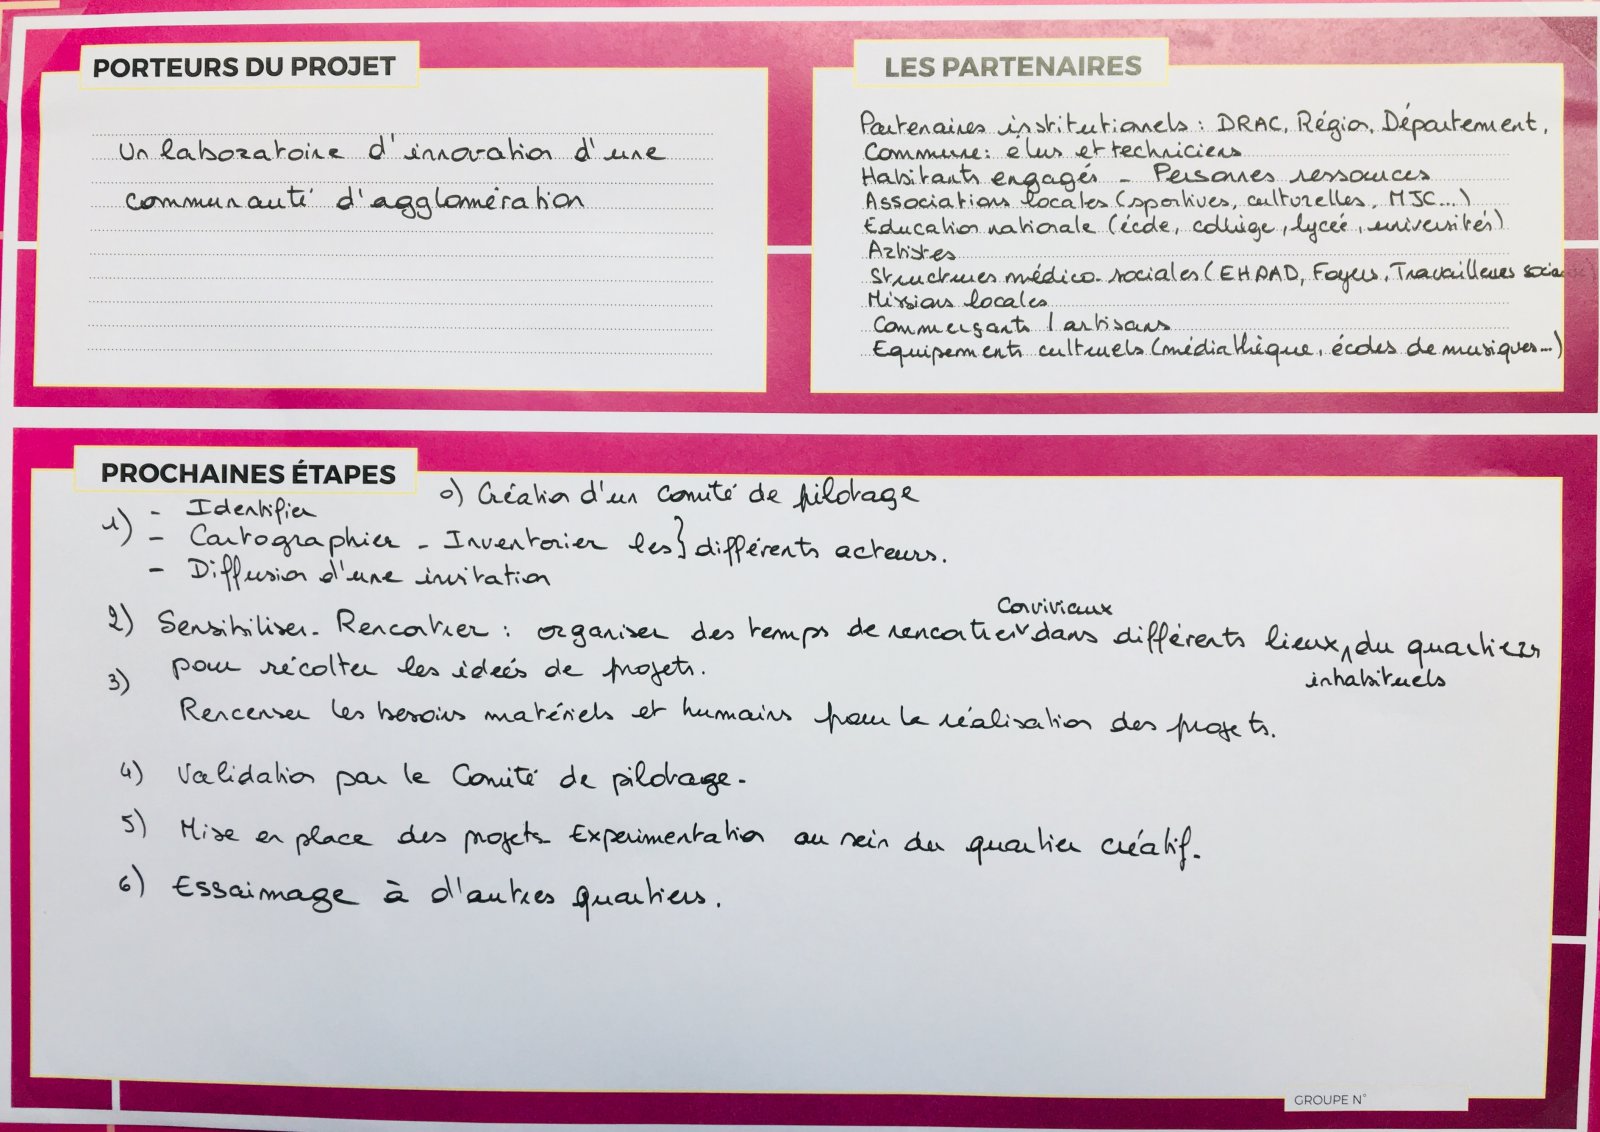 PORTEURS DU PROJET
Un laboratoire d'innovation d'une
communauté d'agglomération
LES PARTENAIRES
Partenaires institutionnels : DRAC, Région, Département,
Commune : élus et techniciens
Habitants engagés - Personnes ressources
Associations locales (sportives, culturelles, MJC...)
Education nationale (école, collège, lycée, universités)
Artistes
Structures médico-sociales (EHPAD, Foyers, Travailleurs socia
Missions locales
Commerçants / artisans
Equipements culturels (médiathèque, écoles de musiques...)
PROCHAINES ÉTAPES
0) Création d'un comité de pilotage
1) - Identifier
- Cartographier - Inventorier les } différents acteurs.
- Diffusion d'une invitation
conviviaux
2) Sensibiliser - Rencontrer : organiser des temps de rencontre dans différents lieux, du quartiers
inhabituels
pour récolter les idées de projets.
3) Rencenser les besoins matériels et humains pour la réalisation des projets.
4) Validation par le Comité de pilotage.
5) Mise en place des projets Experimentation au sein du quartier créatif.
6) Essaimage à d'autres quartiers.
GROUPE N°